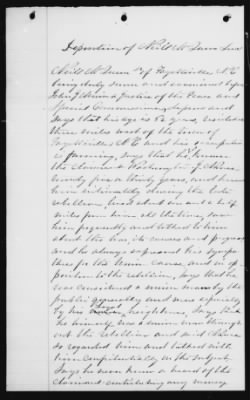 Deposition of Neill McQueen
Neill McQueen of Fayetteville N.C.
being duly sworn and examined before
John a Justice of the Peace and
Special Commissioner deposes and
says that his age is 52 years, resides
three miles west of the town of
Fayetteville N.C. and his occupation
is farming, says that he knows
the claimant
for thirty years, and has
been intimately during the late
rebellion, lived about one and a half
miles from him all the time, saw
him frequently and talked to him
about the war, its causes and progress
and he always expressed his sympa
thies for the Union cause, and in op
position to the rebellion, says that he
was considered a union man by the
public generally and more especially
by his loyal neighbors, says that
he himself was a union man through
out the rebellion and said claimant
so regarded him and talked with
him confidentially on the subject,
says he never knew or heard of the
claimant contributing any money